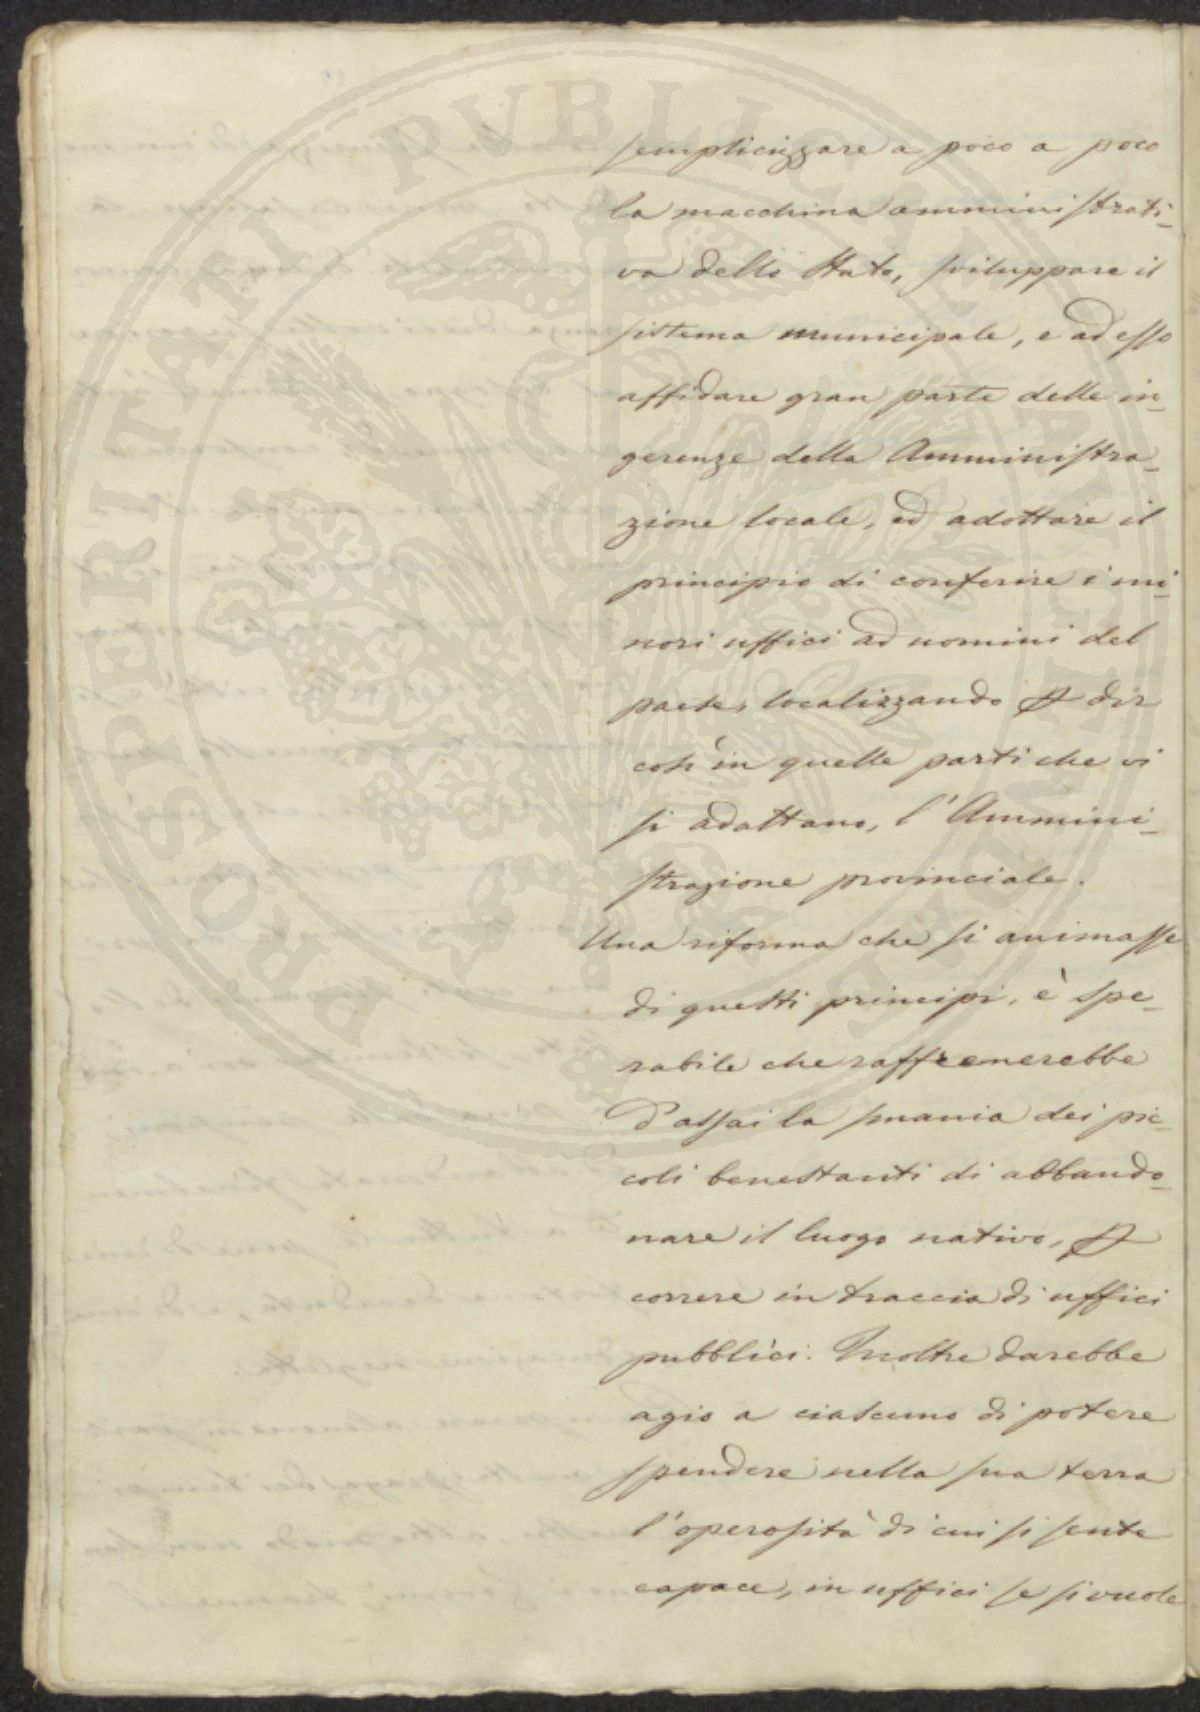 PROSPERITATI PVBLICAE AVGENDAE
semplicizzare a poco a poco
la macchina amministrati-
va dello Stato, sviluppare il
sistema municipale, e ad esso
affidare gran parte delle in-
gerenze della Amministra-
zione locale, ed adottare il
principio di conferire i mi-
nori uffici ad uomini del
paese, localizzando p dir
così in quelle parti che vi
si adattano, l'Ammini-
strazione provinciale.
Una riforma che si animasse
di questi principi, è spe-
rabile che raffrenerebbe
d'assai la smania dei pic-
coli benestanti di abbando-
nare il luogo nativo, p
correre in traccia di uffici
pubblici. Inoltre darebbe
agio a ciascuno di potere
spendere nella sua terra
l'operosità di cui si sente
capace, in uffici se si vuole